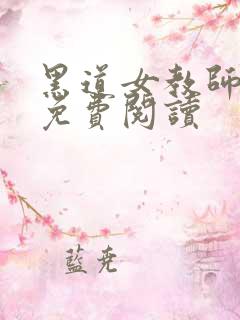 黑道女教師
免費閱讀
藍堯